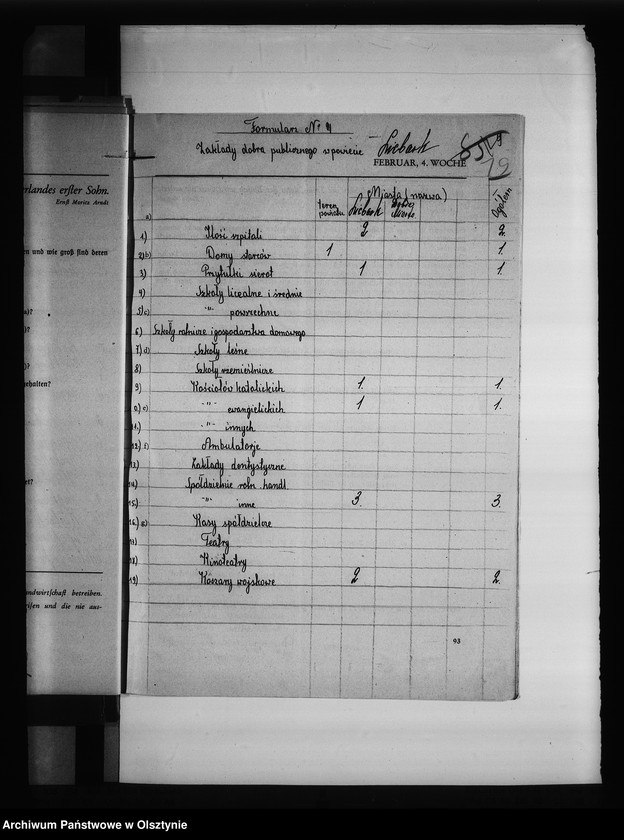 Formularz Nr 4
Zakłady dobra publicznego w powiecie Licbark
FEBRUAR, 4. WOCHE
19
rlandes erster Sohn.
Ernst Moritz Arndt
n und wie groß sind deren
)?
)?
)?
ehalten?
t?
ndwirtschaft betreiben.
eisen und die nie aus-
a) teren powiatu Miasta (nazwa) Licbark Ogółem
1) Ilość szpitali 2 2.
2) b) Domy starców 1 1.
3) Przytułki sierot 1 1.
4) Szkoły licealne i średnie
5) c) -"- powszechne
6) Szkoły rolnicze i gospodarstwa domowego
7) d) Szkoły leśne
8) Szkoły rzemieślnicze
9) Kościołów katolickich 1. 1.
10) e) -"- ewangielickich 1 1.
11) -"- innych
12) f) Ambulatorje
13) Zakłady dentystyczne
14) Spółdzielnie roln. handl.
15) -"- inne 3. 3.
16) g) Kasy spółdzielcze
17) Teatry
18) Kinoteatry
19) Koszary wojskowe 2 2.
93
Archiwum Państwowe w Olsztynie